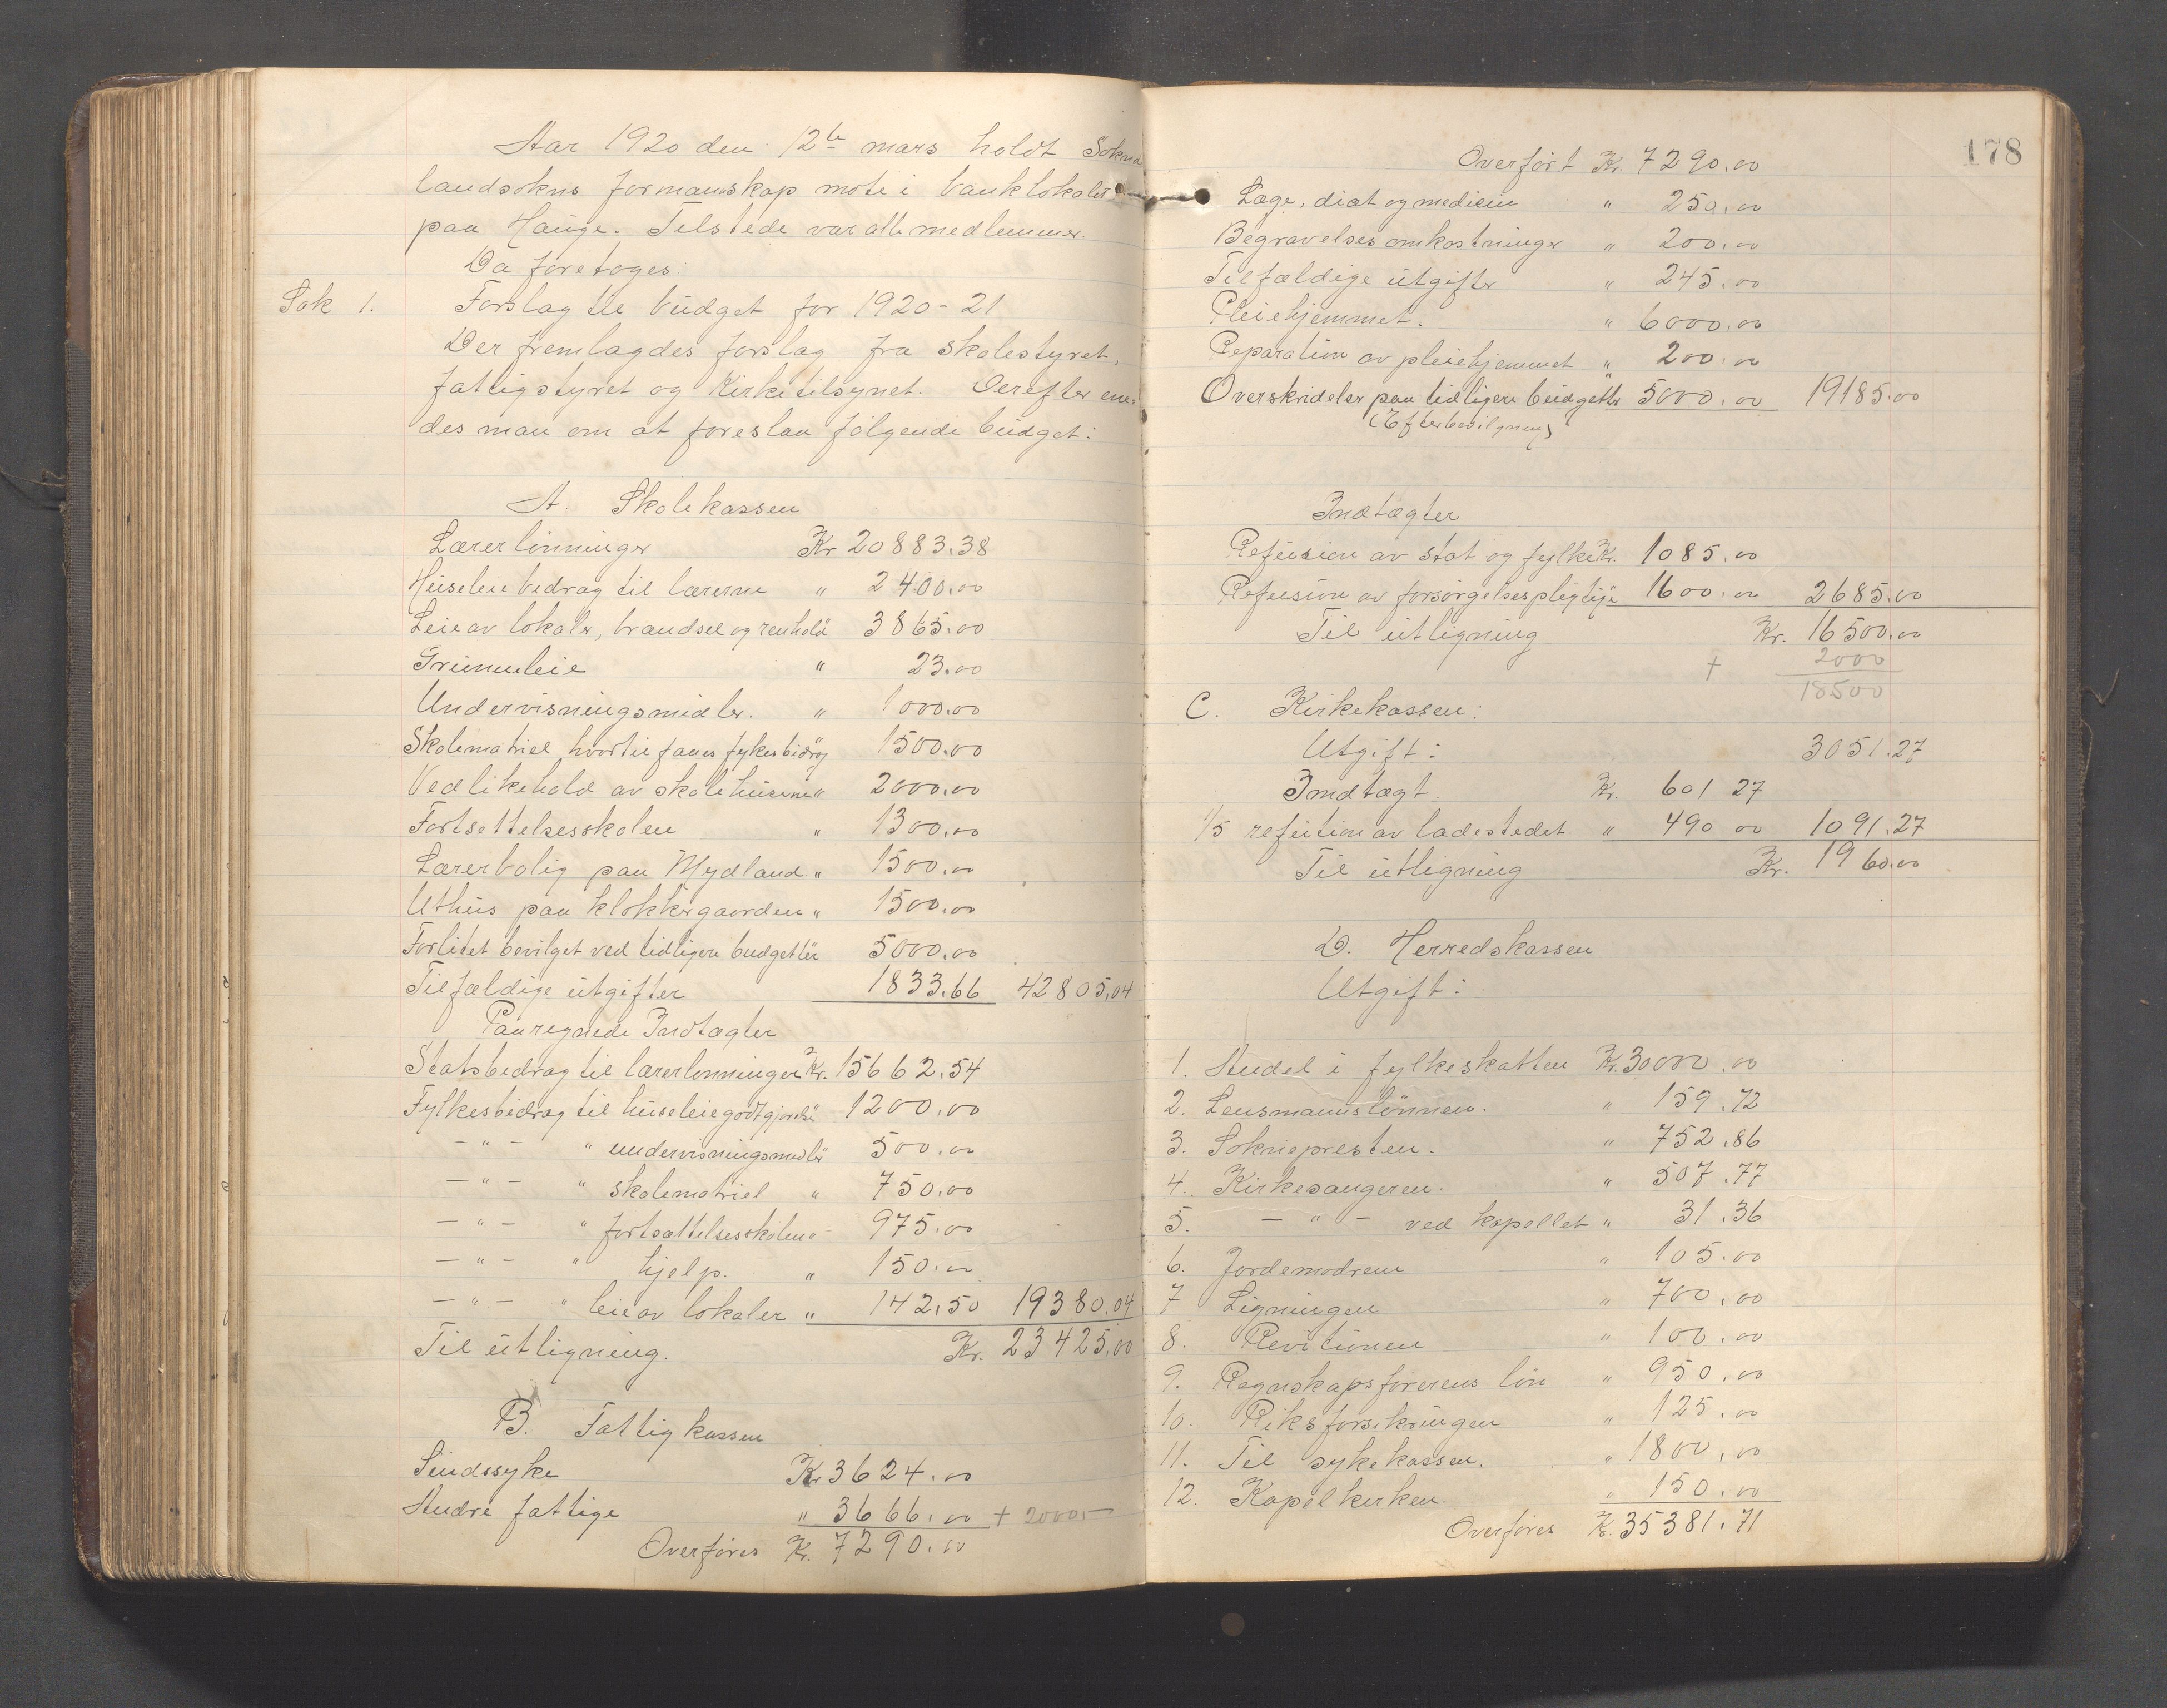 Aar 1920 den 12te mars holdt Sokndal
landsokns formannskap møte i banklokalet
paa Hauge. Tilstede var alle medlemmer.
Da foretoges:
Sak 1. Forslag til budget for 1920-21
Der fremlagdes forslag fra skolestyret,
fattigstyret og Kirketilsynet. Derefter ene-
des man om at foreslaa følgende budget:
A. Skolekassen
Lærerlønninger Kr 20883.38
Huseleiebedrag til lærerne " 2400.00
Leie av lokaler, brændsel og renhold 3865.00
Grunnleie " 23.00
Undervisningsmidler. " 1000.00
Skolematriel hvortil faaes fykesbidrag " 1500.00
Vedlikehold av skolehusene " 2000.00
Fortsettelsesskolen " 1300.00
Lærerbolig paa Mydland " 1500.00
Uthus paa klokkergaarden " 1500.00
Forlitet bevilget ved tidligere budgetter 5000.00
Tilfældige utgifter 1833.66 42805.04
Paaregnede Indtægter
Statsbedrag til lærerlønninger Kr. 15662.54
Fylkesbidrag til huseleiegodtgjørelse " 1200.00
- " - " undervisningsmidler 500.00
- " - " skolematriel " 750.00
- " - " fortsættelsesskolen " 975.00
- " - " hjelp. " 150.00
- " - " leie av lokaler " 142.50 19380.04
Til utligning. Kr. 23425.00
B. Fattigkassen
Sindssyke Kr 3624.00
Andre fattige " 3666.00 + 2000.-
Overføres Kr. 7290.00
178
Overført Kr. 7290.00
Læge, diæt og medicin " 250.00
Begravelsesomkostninger " 200.00
Tilfældige utgifter " 245.00
Pleiehjemmet. " 6000.00
Reparation av pleiehjemmet " 200.00
Overskridelser paa tidligere budgetter " 5000.00 19185.00
(Efterbevilgning)
Indtægter
Refusion av stat og fylke Kr. 1085.00
Refusion av forsørgelsespligtige 1600.00 2685.00
Til utligning Kr. 16500.00
+ 2000
18500
C. Kirkekassen:
Utgift: 3051.27
Indtægt. Kr. 601 27
1/5 refution av ladestedet " 490 00 1091.27
Til utligning Kr. 1960.00
D. Herredskassen
Utgift:
1. Andel i fylkeskatten Kr. 30000.00
2. Lensmannslønnen. " 159.72
3. Soknepresten. " 752.86
4. Kirkesangeren. " 507.77
5. - " - ved kapellet " 31.36
6. Jordemodren " 105.00
7 Ligningen " 700.00
8. Revitionen " 100.00
9. Regnskapsførerens løn " 950.00
10. Riksforsikringen " 125.00
11. Til sykekassen. " 1800.00
12. Kapelkirken. " 150.00
Overføres Kr. 35381.71